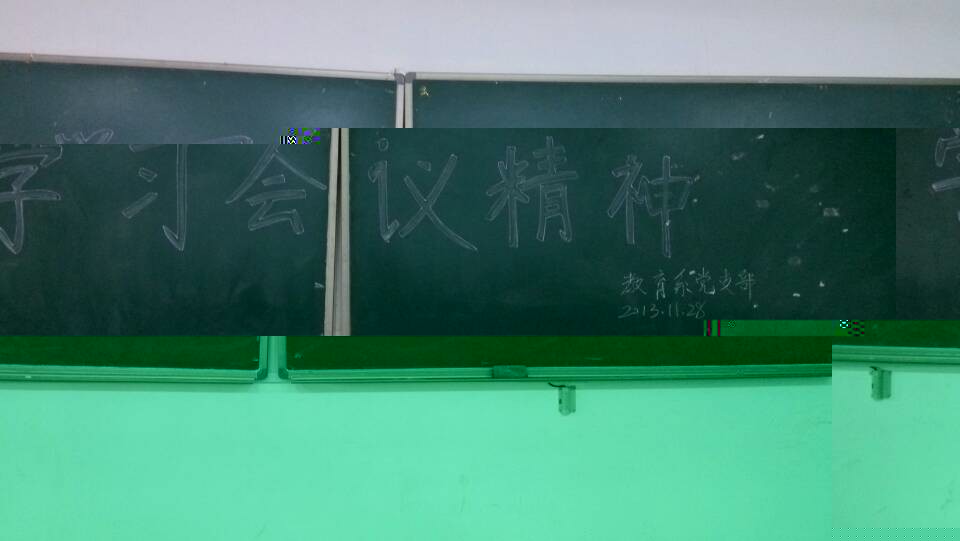 学习会议精神
教育系党支部
2013.11.28